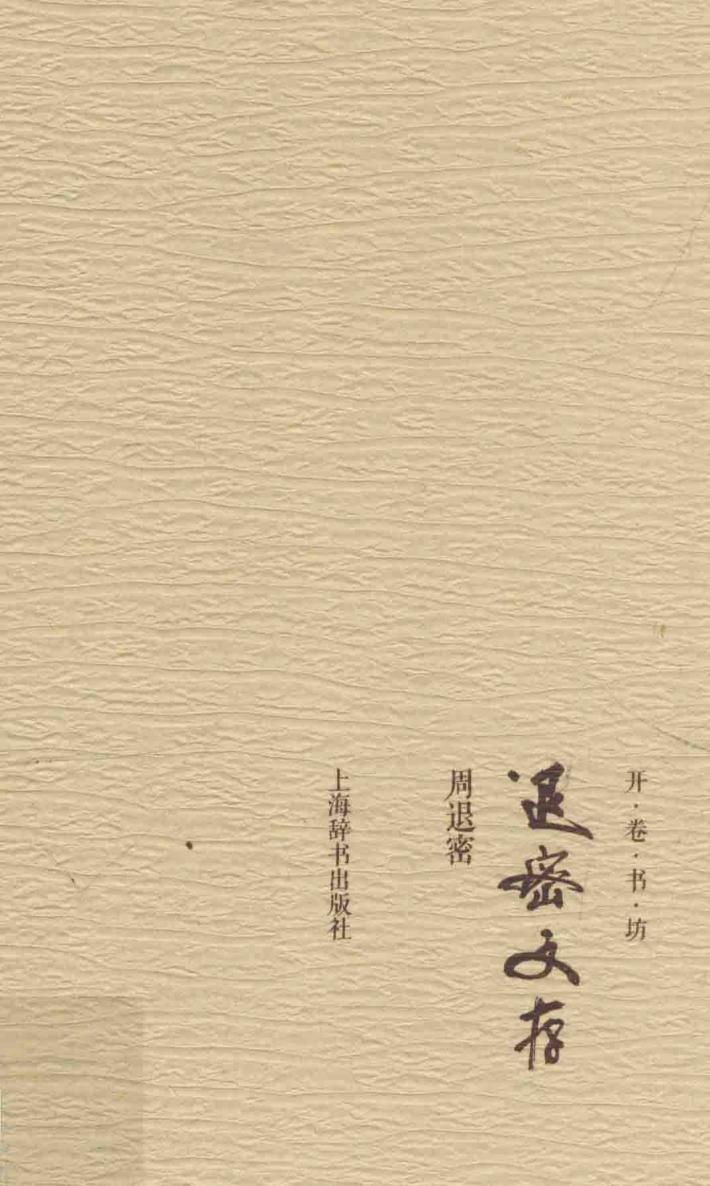 开·卷·书·坊
退密文存
周退密
上海辞书出版社